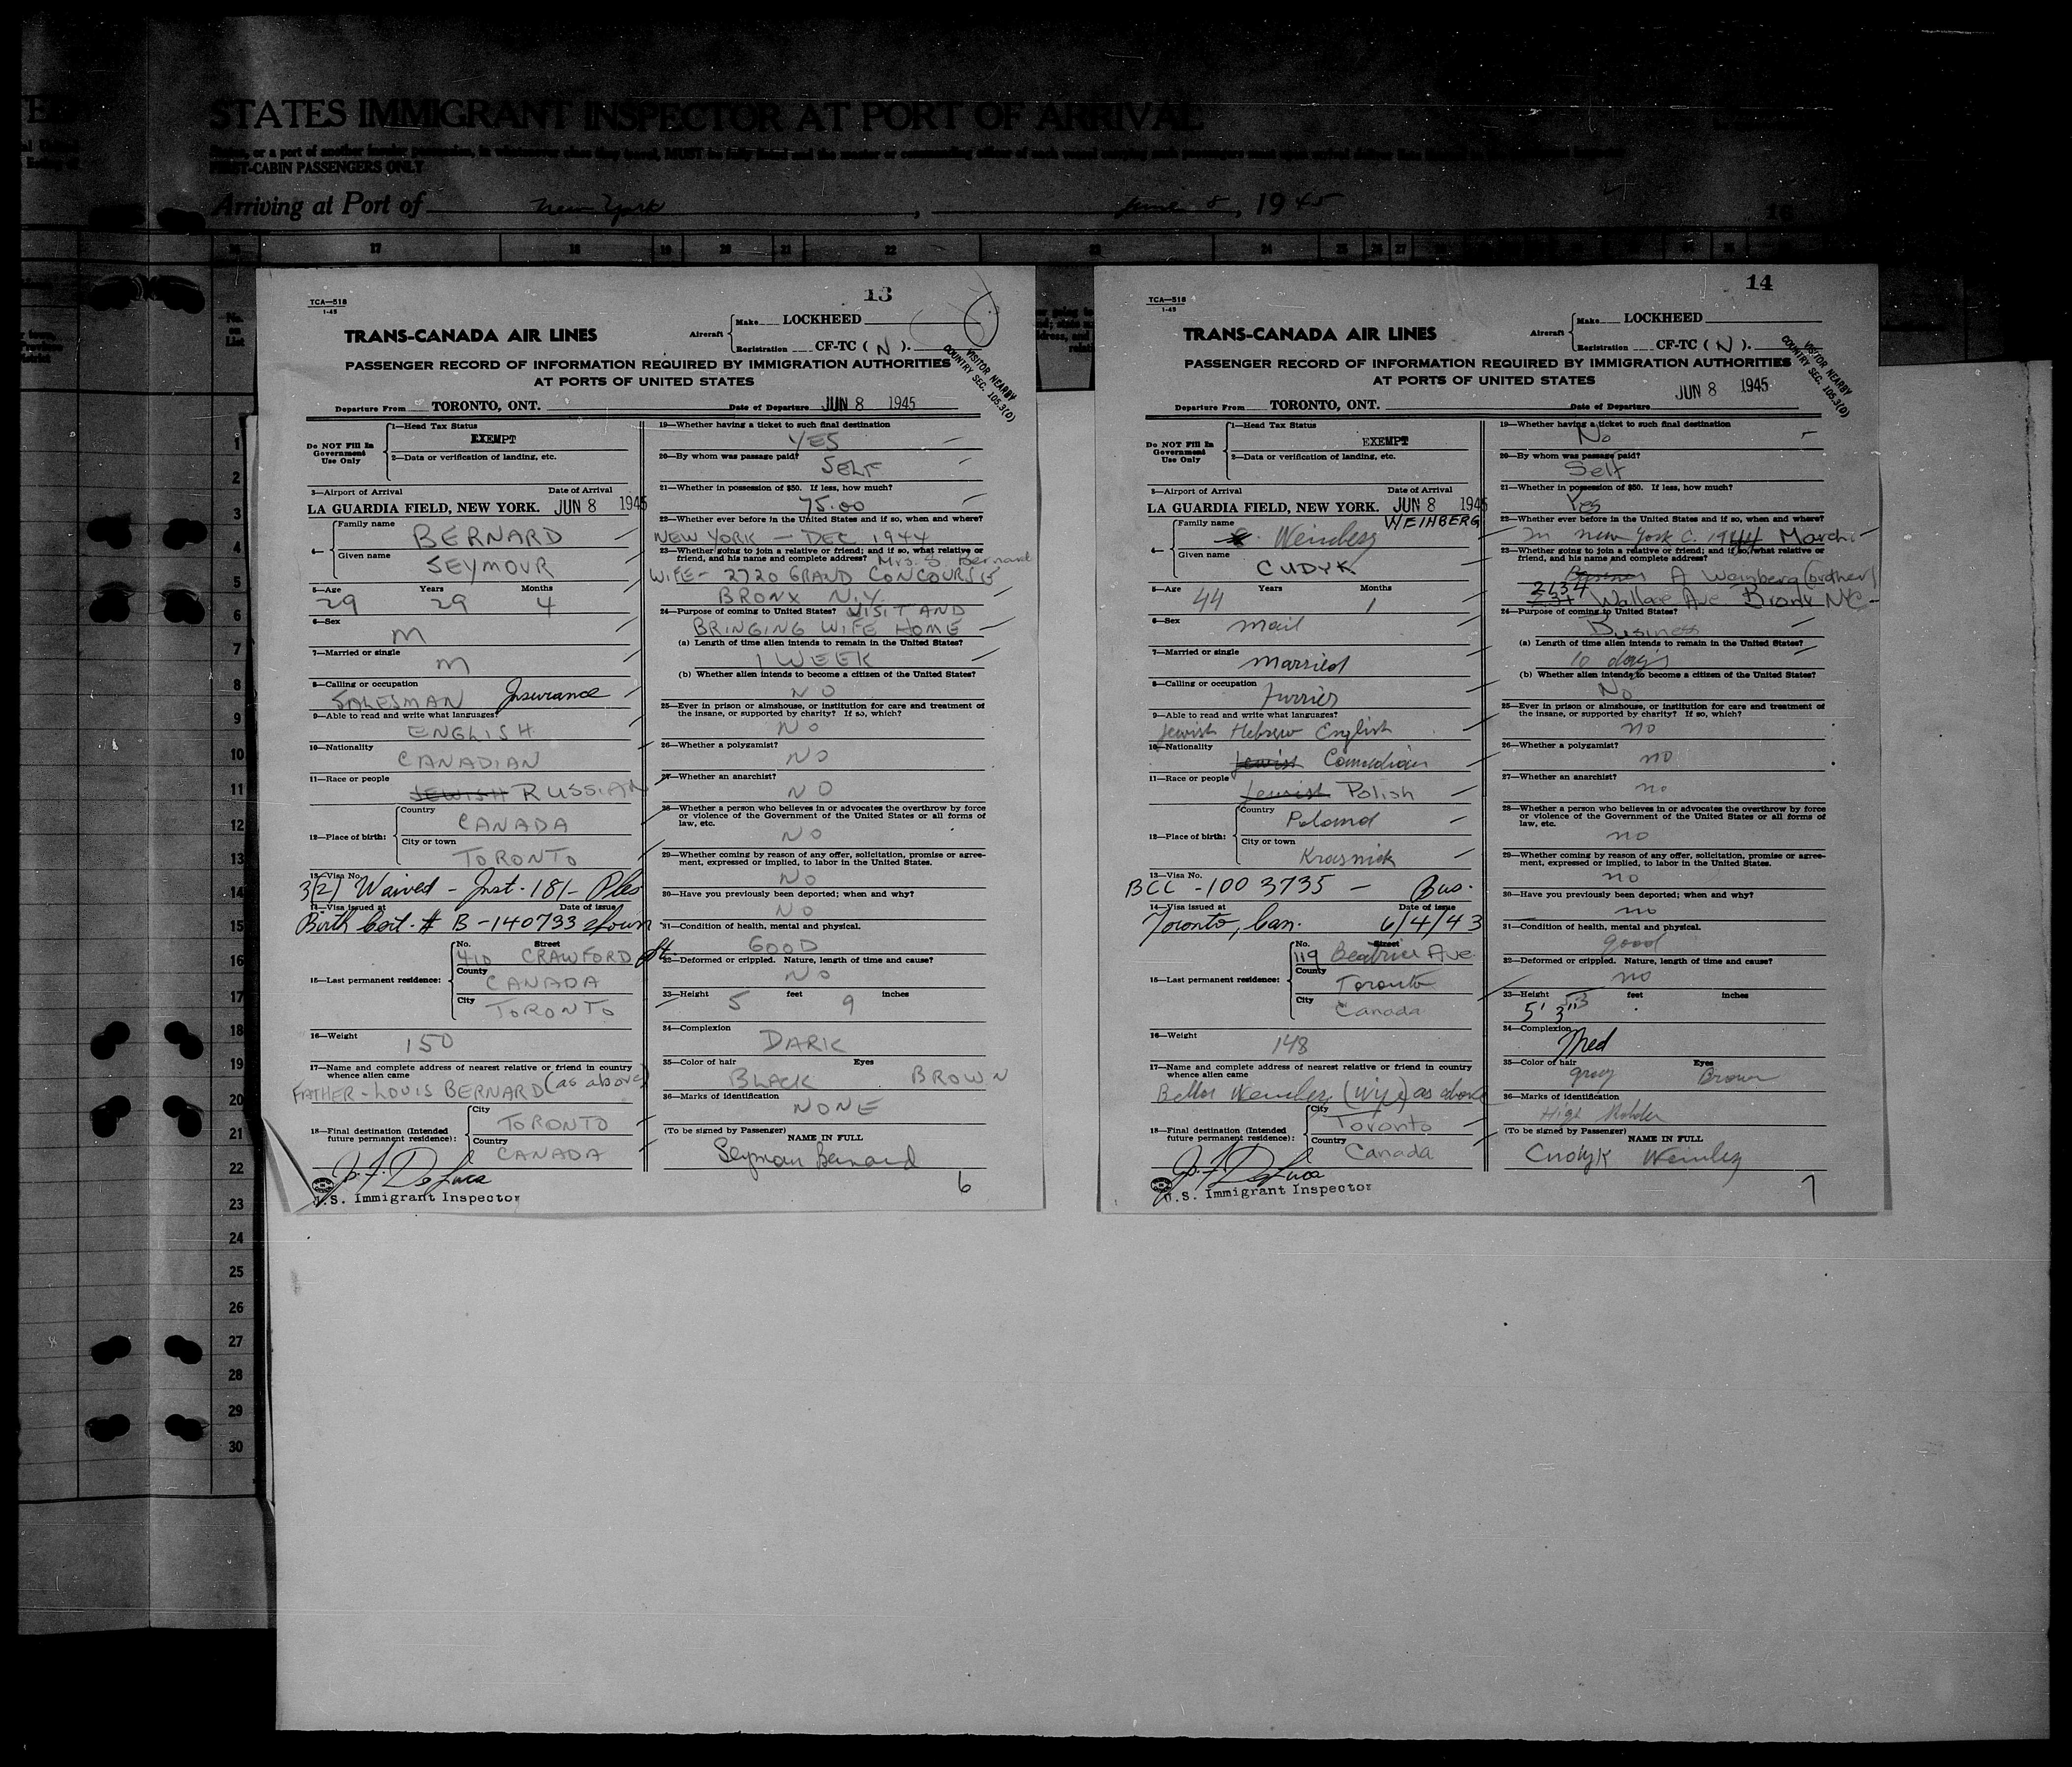 STATES IMMIGRANT INSPECTOR AT PORT OF ARRIVAL
FIRST-CABIN PASSENGERS ONLY
Arriving at Port of New York, June 8, 1945
16 17 18 19 20 21 22 23 24 25 26 27
No. on List
1
2
3
4
5
6
7
8
9
10
11
12
13
14
15
16
17
18
19
20
21
22
23
24
25
26
27
28
29
30
13
TCA—518
1-45
TRANS-CANADA AIR LINES
Aircraft Make LOCKHEED
Registration CF-TC (N).
PASSENGER RECORD OF INFORMATION REQUIRED BY IMMIGRATION AUTHORITIES
AT PORTS OF UNITED STATES
VISITOR NEARBY
COUNTRY SEC. 105.3(D)
Departure From TORONTO, ONT. Date of Departure JUN 8 1945
Do NOT Fill In Government Use Only
1—Head Tax Status
EXEMPT
2—Data or verification of landing, etc.
3—Airport of Arrival Date of Arrival
LA GUARDIA FIELD, NEW YORK. JUN 8 1945
4— Family name
BERNARD
Given name
SEYMOUR
5—Age Years Months
29 29 4
6—Sex
M
7—Married or single
M
8—Calling or occupation
SALESMAN Insurance
9—Able to read and write what languages?
ENGLISH
10—Nationality
CANADIAN
11—Race or people
JEWISH RUSSIAN
12—Place of birth: Country
CANADA
City or town
TORONTO
13—Visa No.
3(2) Waived - Inst. 181-
14—Visa issued at Date of issue
Birth Cert. # B-140733 shown
15—Last permanent residence: No. Street
410 CRAWFORD St.
County
CANADA
City
TORONTO
16—Weight
150
17—Name and complete address of nearest relative or friend in country
whence alien came
FATHER - LOUIS BERNARD (as above)
18—Final destination (Intended future permanent residence): City
TORONTO
Country
CANADA
J. F. DeLuca
U.S. Immigrant Inspector
19—Whether having a ticket to such final destination
YES
20—By whom was passage paid?
SELF
21—Whether in possession of $50. If less, how much?
75.00
22—Whether ever before in the United States and if so, when and where?
NEW YORK — DEC 1944
23—Whether going to join a relative or friend; and if so, what relative or
friend, and his name and complete address? Mrs. S. Bernard
WIFE - 2720 GRAND CONCOURSE
BRONX N.Y.
24—Purpose of coming to United States? VISIT AND
BRINGING WIFE HOME
(a) Length of time alien intends to remain in the United States?
1 WEEK
(b) Whether alien intends to become a citizen of the United States?
NO
25—Ever in prison or almshouse, or institution for care and treatment of
the insane, or supported by charity? If so, which?
NO
26—Whether a polygamist?
NO
27—Whether an anarchist?
NO
28—Whether a person who believes in or advocates the overthrow by force
or violence of the Government of the United States or all forms of
law, etc.
NO
29—Whether coming by reason of any offer, solicitation, promise or agree-
ment, expressed or implied, to labor in the United States.
NO
30—Have you previously been deported; when and why?
NO
31—Condition of health, mental and physical.
GOOD
32—Deformed or crippled. Nature, length of time and cause?
NO
33—Height 5 feet 9 inches
34—Complexion
DARK
35—Color of hair Eyes
BLACK BROWN
36—Marks of identification
NONE
(To be signed by Passenger)
NAME IN FULL
Seymour Bernard
6
14
TCA—518
1-45
TRANS-CANADA AIR LINES
Aircraft Make LOCKHEED
Registration CF-TC (N).
PASSENGER RECORD OF INFORMATION REQUIRED BY IMMIGRATION AUTHORITIES
AT PORTS OF UNITED STATES
VISITOR NEARBY
COUNTRY SEC. 105.3(D)
JUN 8 1945
Departure From TORONTO, ONT. Date of Departure
Do NOT Fill In Government Use Only
1—Head Tax Status
EXEMPT
2—Data or verification of landing, etc.
3—Airport of Arrival Date of Arrival
LA GUARDIA FIELD, NEW YORK. JUN 8 1945
4— Family name WEINBERG
Weinberg
Given name
CUDYK
5—Age Years Months
44 1
6—Sex
mail
7—Married or single
married
8—Calling or occupation
furrier
9—Able to read and write what languages?
Jewish Hebrew English
10—Nationality
Jewish Canadian
11—Race or people
Jewish Polish
12—Place of birth: Country
Poland
City or town
Krasnick
13—Visa No.
BCC - 100 3735 — Bus.
14—Visa issued at Date of issue
Toronto, Can. 6/4/43
15—Last permanent residence: No. Street
119 Beatrice Ave
County
Toronto
City
Canada
16—Weight
148
17—Name and complete address of nearest relative or friend in country
whence alien came
Weinberg (wife) as above
18—Final destination (Intended future permanent residence): City
Toronto
Country
Canada
J. F. DeLuca
U.S. Immigrant Inspector
19—Whether having a ticket to such final destination
No
20—By whom was passage paid?
Self
21—Whether in possession of $50. If less, how much?
Yes
22—Whether ever before in the United States and if so, when and where?
In new York C. 1944 March
23—Whether going to join a relative or friend; and if so, what relative or
friend, and his name and complete address?
A Weinberg (brother)
2134 Wallace Ave. Bronx NYC
24—Purpose of coming to United States?
Business
(a) Length of time alien intends to remain in the United States?
10 days
(b) Whether alien intends to become a citizen of the United States?
No
25—Ever in prison or almshouse, or institution for care and treatment of
the insane, or supported by charity? If so, which?
no
26—Whether a polygamist?
no
27—Whether an anarchist?
no
28—Whether a person who believes in or advocates the overthrow by force
or violence of the Government of the United States or all forms of
law, etc.
no
29—Whether coming by reason of any offer, solicitation, promise or agree-
ment, expressed or implied, to labor in the United States.
no
30—Have you previously been deported; when and why?
no
31—Condition of health, mental and physical.
good
32—Deformed or crippled. Nature, length of time and cause?
no
33—Height feet inches
5' 3"
34—Complexion
Med
35—Color of hair Eyes
gray Brown
36—Marks of identification
(To be signed by Passenger)
NAME IN FULL
Cudyk Weinberg
7